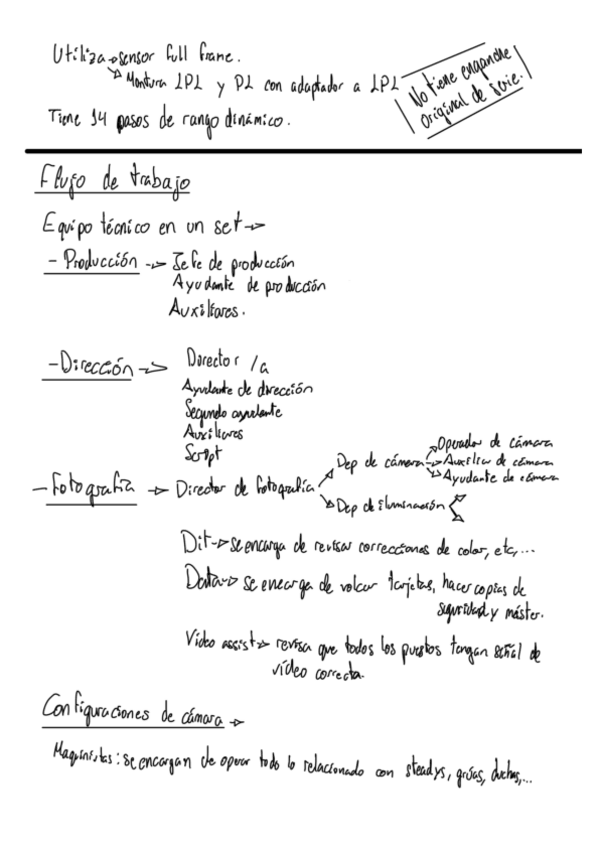 Utiliza → sensor full frame.
→ Montura LPL y PL con adaptador a LPL
No tiene enganche
original de serie.
Tiene 14 pasos de rango dinámico.
Flujo de trabajo
Equipo técnico en un set →
- Producción → Jefe de producción
Ayudante de producción
Auxiliares.
- Dirección → Director /a
Ayudante de dirección
Segundo ayudante
Auxiliares
Script
- Fotografía → Director de fotografía
Dep de cámara
→ Operador de cámara
→ Auxiliar de cámara
→ Ayudante de cámara
Dep de iluminación
Dit → se encarga de revisar correcciones de color, etc,...
Data → se encarga de volcar tarjetas, hacer copias de
seguridad y máster.
Video assist → revisa que todos los puestos tengan señal de
vídeo correcta.
Configuraciones de cámara →
Maquinistas: se encargan de operar todo lo relacionado con steadys, grúas, duchas,...